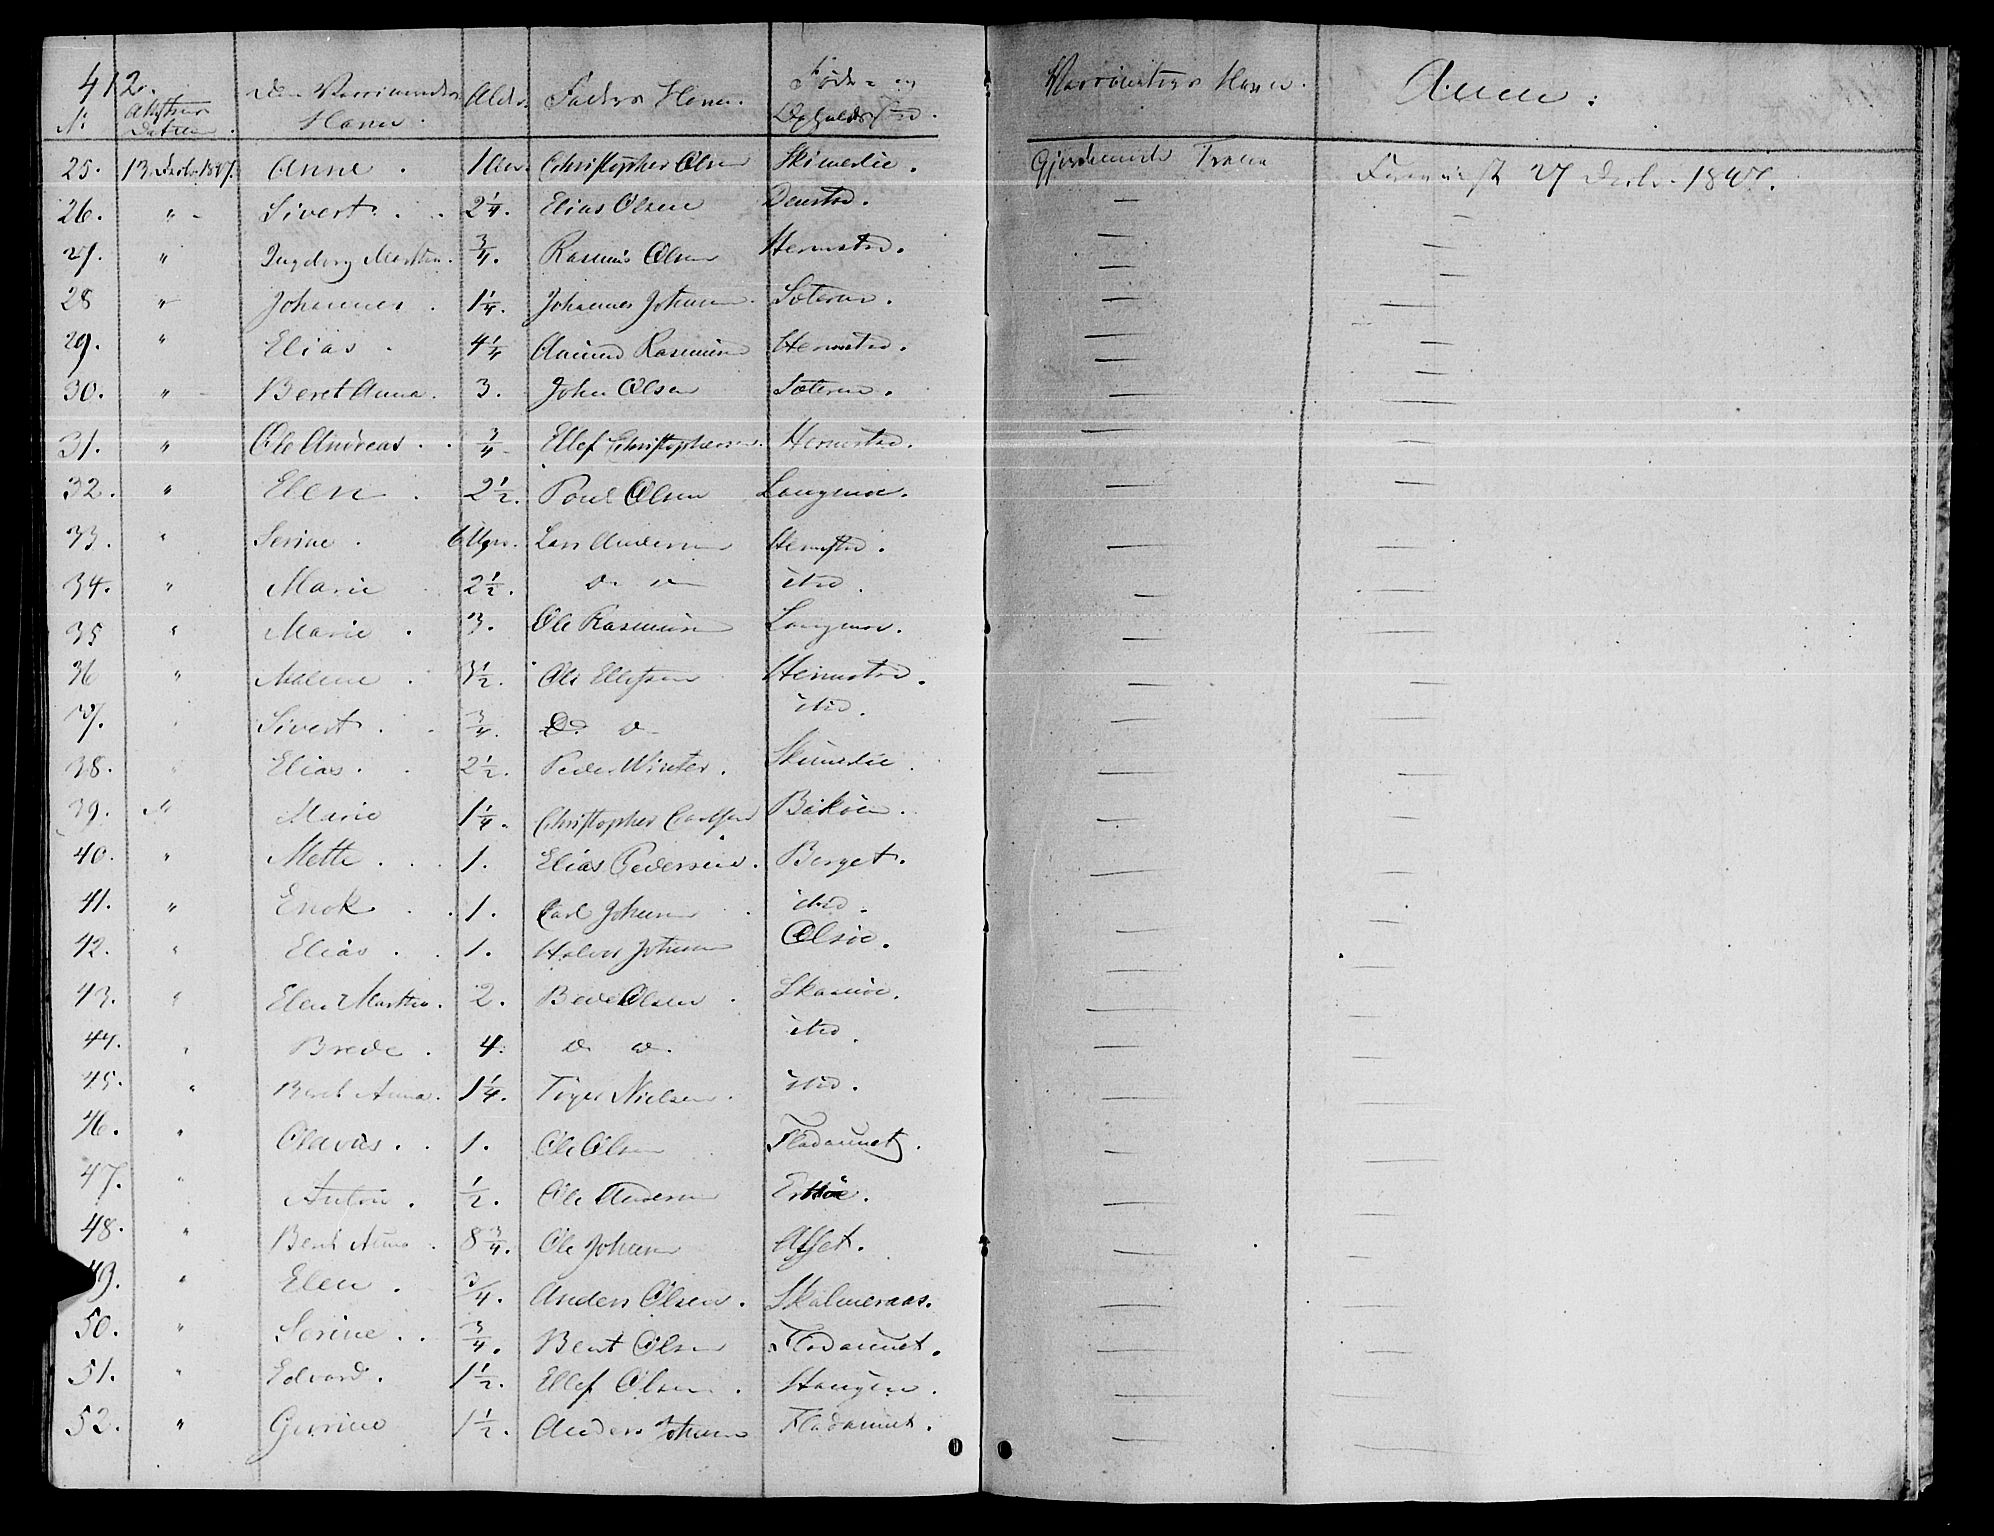 412.
No Attestens Datum. Den Vaccineredes Navn. Alder. Faders Navn. Føde- og Opholdssted. Vaccineurs Navn. Anm:
25. 13 Decbr 1847. Anne. 1 Aar. Christopher Olsen Skimeslie. Gjordemoder Foreviist 27 Decbr. 1847.
26. " Sivert. 2 1/4. Elias Olsen — —
27. " Ingeborg Marthe. 3/4. Rasmus Olsen Hermstad. — —
28 " Johannes. 1 1/4. Johannes Johansen Sæteren. — —
29. " Elias. 4 1/4 Amund Rasmusen Hermstad. — —
30. " Beret Anna. 3. John Olsen Sæteren. — —
31. " Ole Andreas. 3/4 Ellef Christophersen. Hermstad. — —
32. " Elen. 2 1/2. Poul Olsen Langmoe. — —
33. " Serine. 6 Uger. Lars Andersen Hermstad. — —
34. " Marie 2 1/2. do do itid. — —
35 " Marie. 3. Ole Rasmusen Langmoe. — —
36 " Malene. 3 1/2. Ole Ellefsen Hermstad. — —
37. " Sivert. 3/4. Do do itid. — —
38. " Elias. 2 1/2. Peder Winter. Skimeslie. — —
39. " Marie 1 1/4. Christopher Carlsen — —
40. " Mette. 1. Elias Pedersen. Berget. — —
41. " Enok. 1. Carl Johansen itid. — —
42. " Elias. 1. Halvor Johansen — —
43. " Elen Marthe. 2. Brede Olsen Skarmoe. — —
44. " Brede. 4. do do. itid. — —
45. " Beret Anna. 1 1/4. Nielsen. itid. — —
46. " Olavus. 1. Ole Olsen Fladaunet. — —
47. " Anton. 1/2. Ole Andersen — —
48. " Beret Anna. 8 3/4. Ole Johansen — —
49. " Elen. 3/4. Anders Olsen. Skalmeraas. — —
50. " Serine. 3/4. Bent Olsen Fladaunet. — —
51. " Edvard. 1 1/2. Ellef Olsen. Haugen. — —
52. " Gurine 1 1/2. Anders Johansen Fladaunet. — —